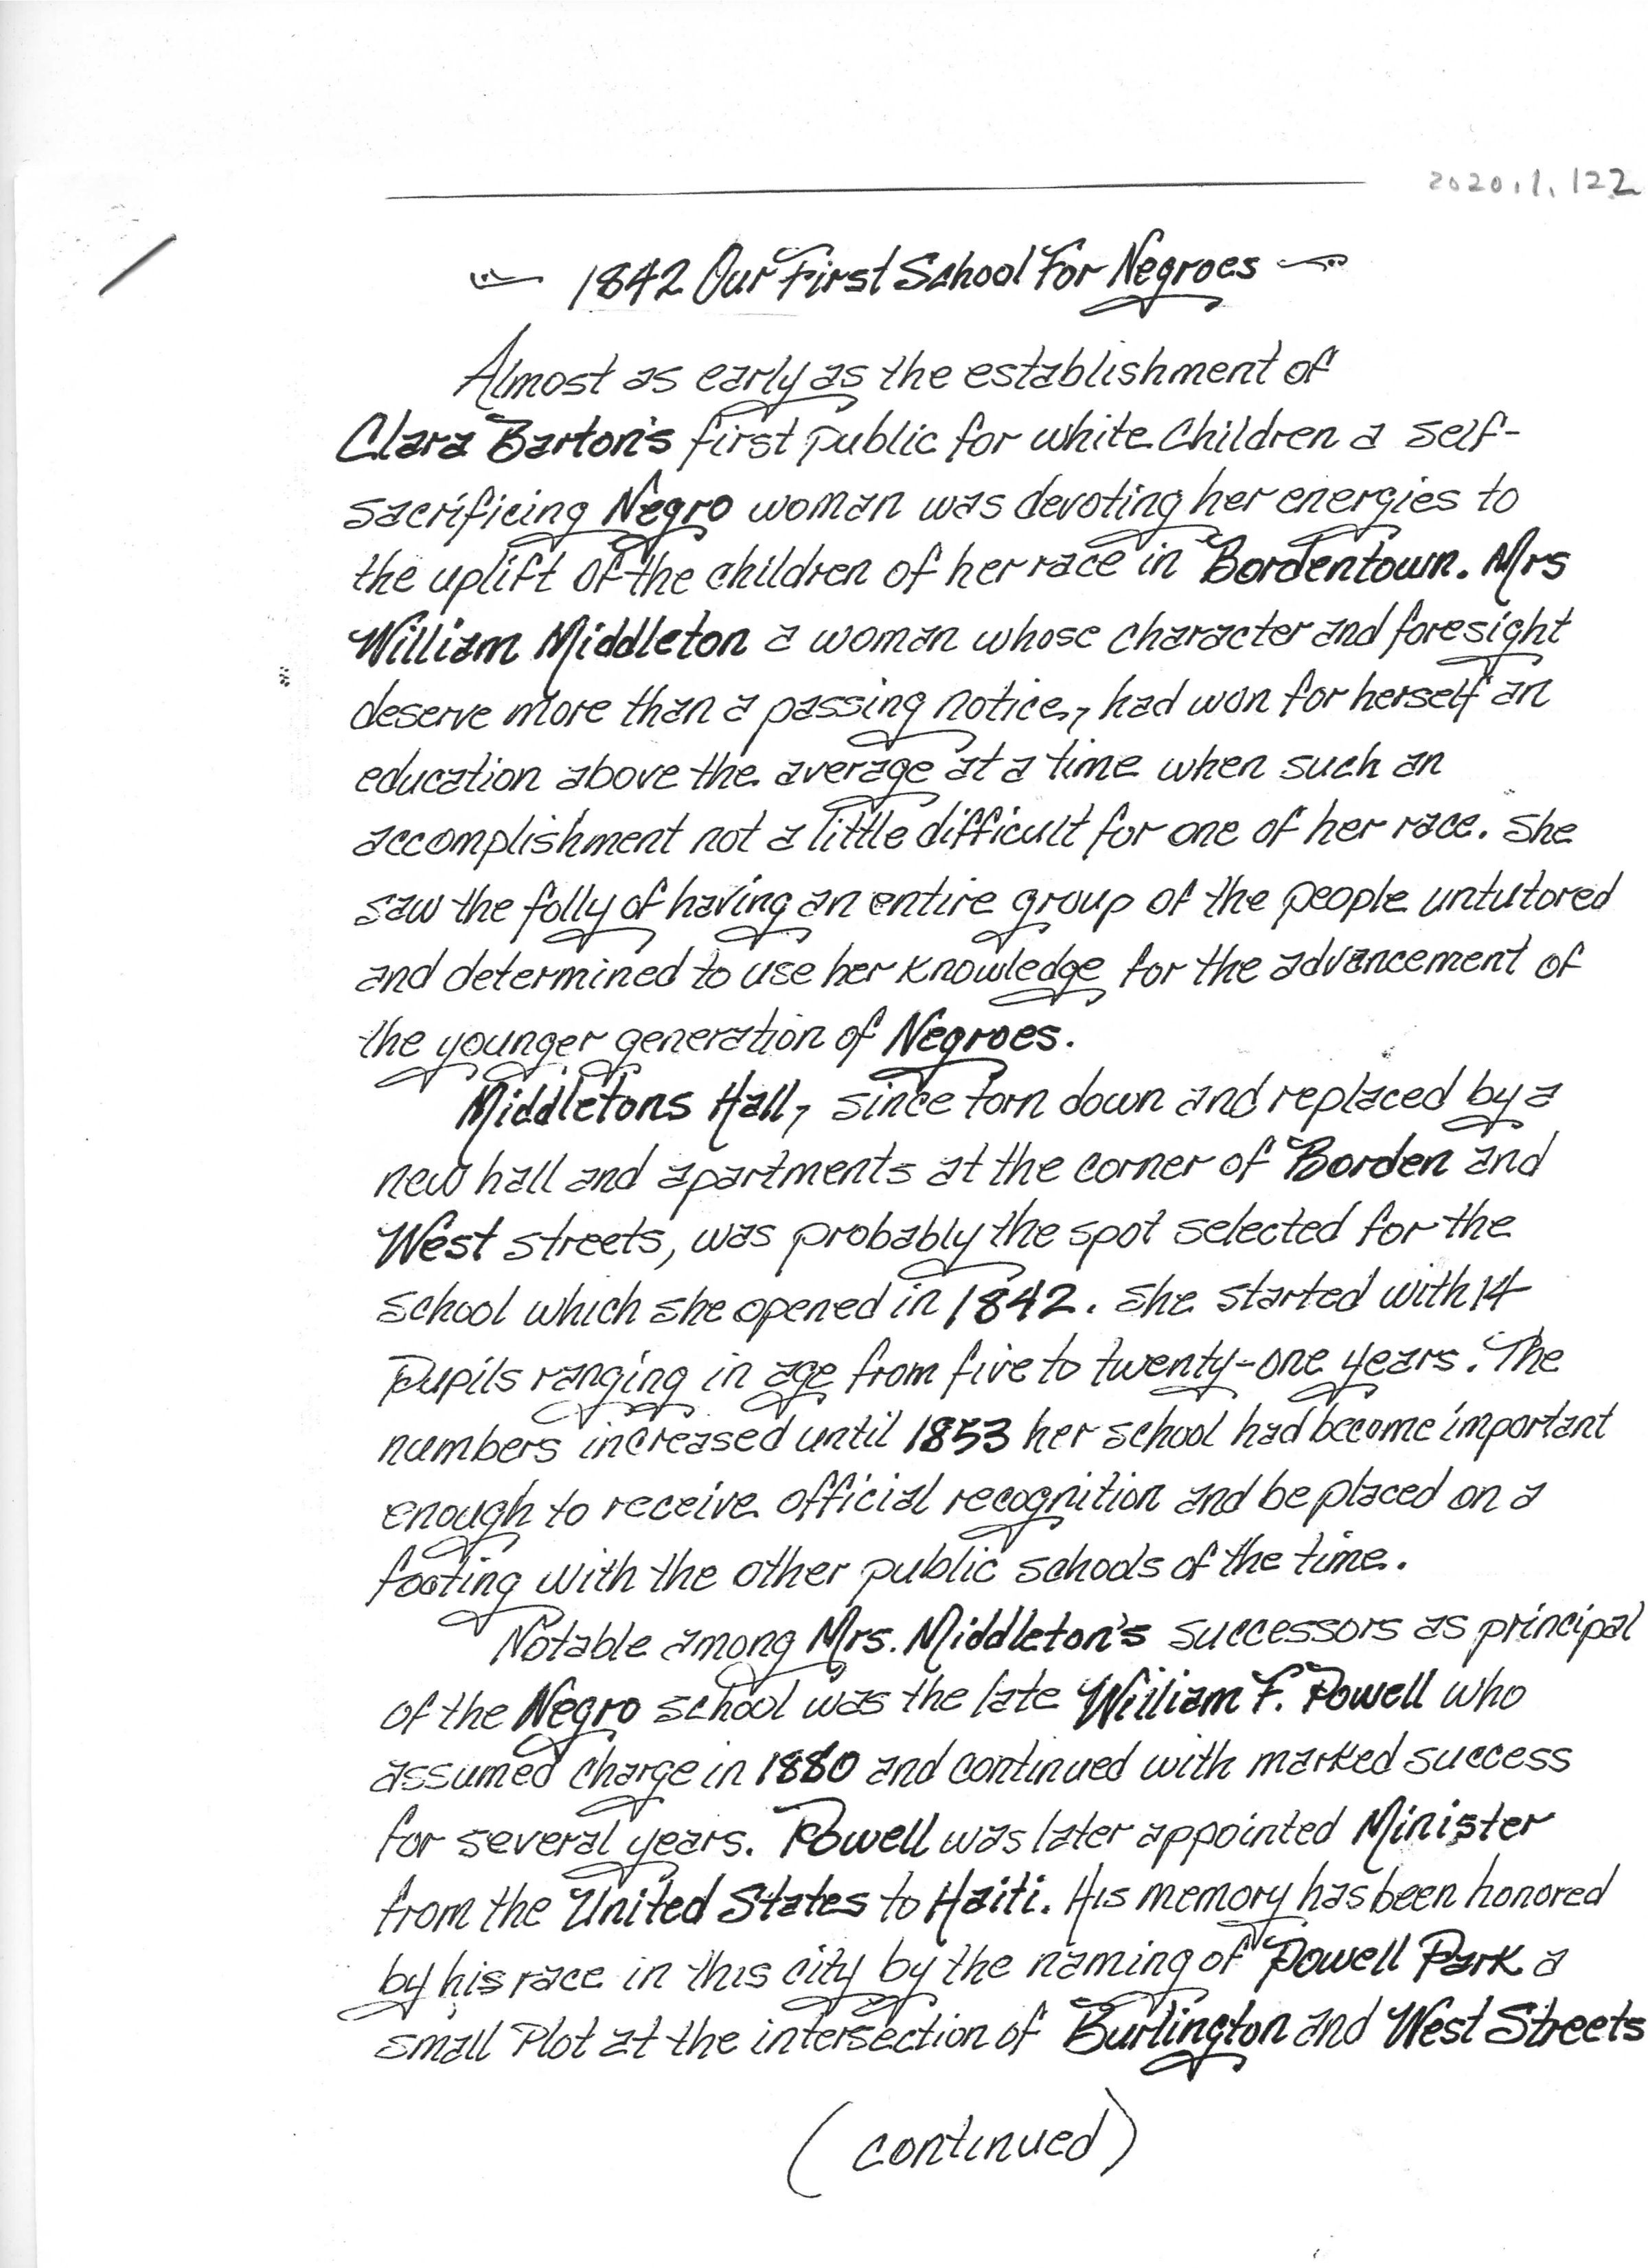 2020.1.122
1842 Our First School For Negroes
Almost as early as the establishment of
Clara Barton's first public for white children a self-
sacrificing Negro woman was devoting her energies to
the uplift of the children of her race in Bordentown. Mrs
William Middleton a woman whose character and foresight
deserve more than a passing notice, had won for herself an
education above the average at a time when such an
accomplishment not a little difficult for one of her race. She
saw the folly of having an entire group of the people untutored
and determined to use her knowledge for the advancement of
the younger generation of Negroes.
Middletons Hall, since torn down and replaced by a
new hall and apartments at the corner of Borden and
West streets, was probably the spot selected for the
school which she opened in 1842. She started with 14
Pupils ranging in age from five to twenty-one years. The
numbers increased until 1853 her school had become important
enough to receive official recognition and be placed on a
footing with the other public schools of the time.
Notable among Mrs. Middleton's successors as principal
of the Negro school was the late William F. Powell who
assumed charge in 1880 and continued with marked success
for several years. Powell was later appointed Minister
from the United States to Haiti. His memory has been honored
by his race in this city by the naming of Powell Park a
small Plot at the intersection of Burlington and West Streets
(continued)